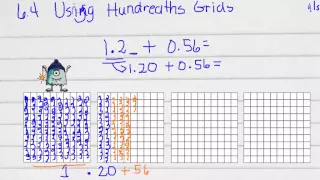 6.4 Using Hundreaths Grids
1.2_ + 0.56=
1.20 + 0.56=
1 . 20 + 56